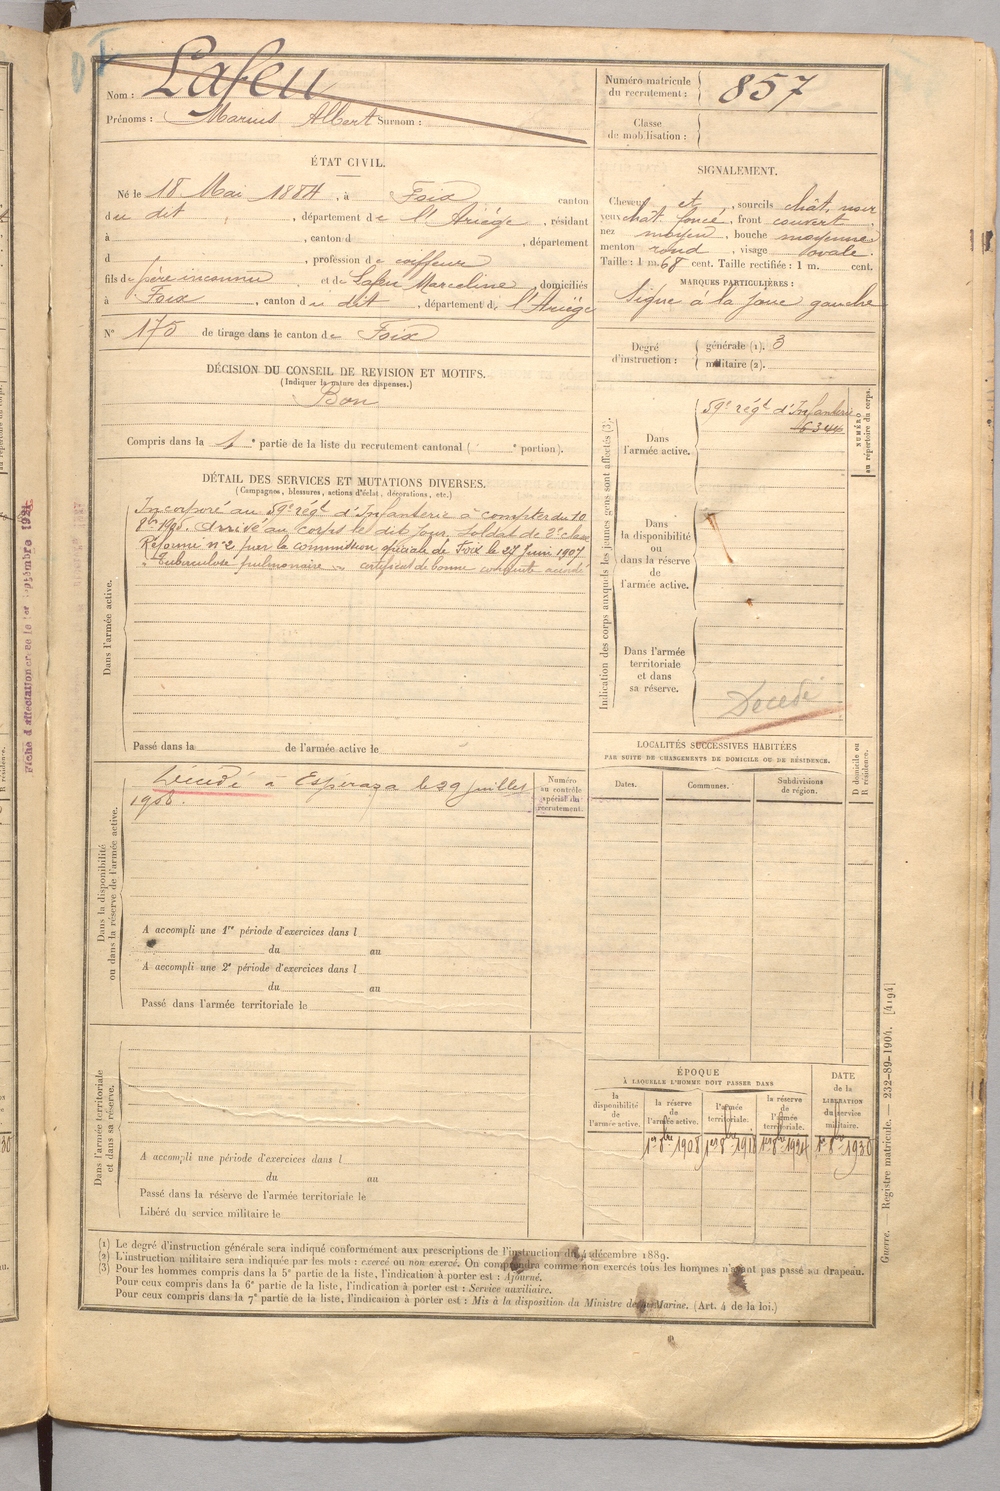 Nom : Lafeu
Prénoms : Marius Albert Surnom :
Numéro matricule du recrutement : 857
Classe de mobilisation :
ÉTAT CIVIL.
Né le 18 Mai 1884, à Foix canton
du dit, département de l'Ariège, résidant
à, canton d, département
d, profession de coiffeur
fils de père inconnu et de Lafeu Marceline, domiciliés
à Foix, canton du dit, département de l'Ariège
N° 175 de tirage dans le canton de Foix
SIGNALEMENT.
Cheveux et, sourcils chât. noir
yeux chât. foncé, front couvert,
nez moyen, bouche moyenne
menton rond, visage ovale.
Taille : 1 m. 68 cent. Taille rectifiée : 1 m. cent.
MARQUES PARTICULIÈRES :
Signe à la joue gauche
Degré d'instruction :
générale (1). 3
militaire (2).
DÉCISION DU CONSEIL DE REVISION ET MOTIFS.
(Indiquer la nature des dispenses.)
Bon
Compris dans la 1e partie de la liste du recrutement cantonal ( e portion).
DÉTAIL DES SERVICES ET MUTATIONS DIVERSES.
(Campagnes, blessures, actions d'éclat, décorations, etc.)
Dans l'armée active.
Incorporé au 59e régt d'Infanterie à compter du 10
8bre 1905. Arrivé au corps le dit jour. Soldat de 2e classe
Réformé n°2 par la commission spéciale de Foix le 27 Juin 1907
"Tuberculose pulmonaire" certificat de bonne conduite accordé
Passé dans la de l'armée active le
Indication des corps auxquels les jeunes gens sont affectés (3).
Dans l'armée active.
59e régt d'Infanterie
6344
NUMÉRO au répertoire du corps.
Dans la disponibilité ou dans la réserve de l'armée active.
Dans l'armée territoriale et dans sa réserve.
Décédé
Dans la disponibilité ou dans la réserve de l'armée active.
Décédé à Espéraza le 29 juillet
1908.
Numéro au contrôle spécial du recrutement.
A accompli une 1re période d'exercices dans l
du au
A accompli une 2e période d'exercices dans l
du au
Passé dans l'armée territoriale le
LOCALITÉS SUCCESSIVES HABITÉES
PAR SUITE DE CHANGEMENTS DE DOMICILE OU DE RÉSIDENCE.
Dates. Communes. Subdivisions de région.
D domicile ou R résidence.
Dans l'armée territoriale et dans sa réserve.
A accompli une période d'exercices dans l
du au
Passé dans la réserve de l'armée territoriale le
Libéré du service militaire le
ÉPOQUE
À LAQUELLE L'HOMME DOIT PASSER DANS
la disponibilité de l'armée active.
la réserve de l'armée active.
l'armée territoriale.
la réserve de l'armée territoriale.
DATE de la LIBÉRATION du service militaire.
1er 8bre 1908 1er 8bre 1918 1er 8bre 1924 1er 8bre 1930
(1) Le degré d'instruction générale sera indiqué conformément aux prescriptions de l'instruction du 4 décembre 1889.
(2) L'instruction militaire sera indiquée par les mots : exercé ou non exercé. On comprendra comme non exercés tous les hommes n'ayant pas passé au drapeau.
(3) Pour les hommes compris dans la 5e partie de la liste, l'indication à porter est : Ajourné.
Pour ceux compris dans la 6e partie de la liste, l'indication à porter est : Service auxiliaire.
Pour ceux compris dans la 7e partie de la liste, l'indication à porter est : Mis à la disposition du Ministre de la Marine. (Art. 4 de la loi.)
Guerre. — Registre matricule. — 232-89-1904. [4194]